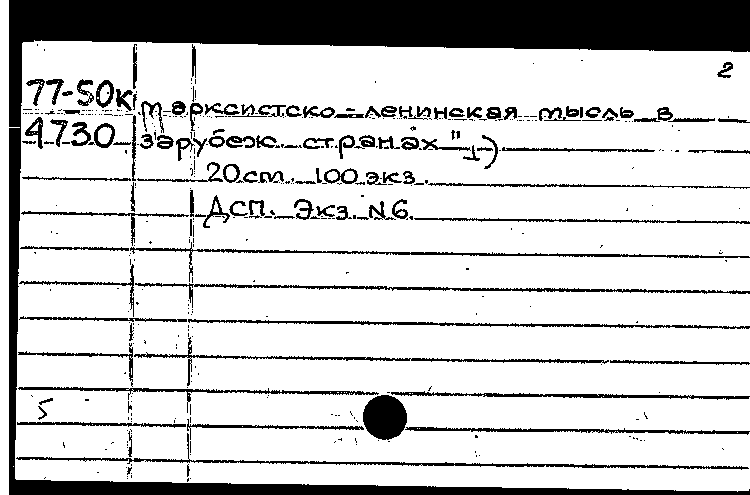 2
77-50к марксистско-ленинская мысль в
4730 зарубеж. странах")
20см. 100 экз.
ДСП. Экз. N6.
5